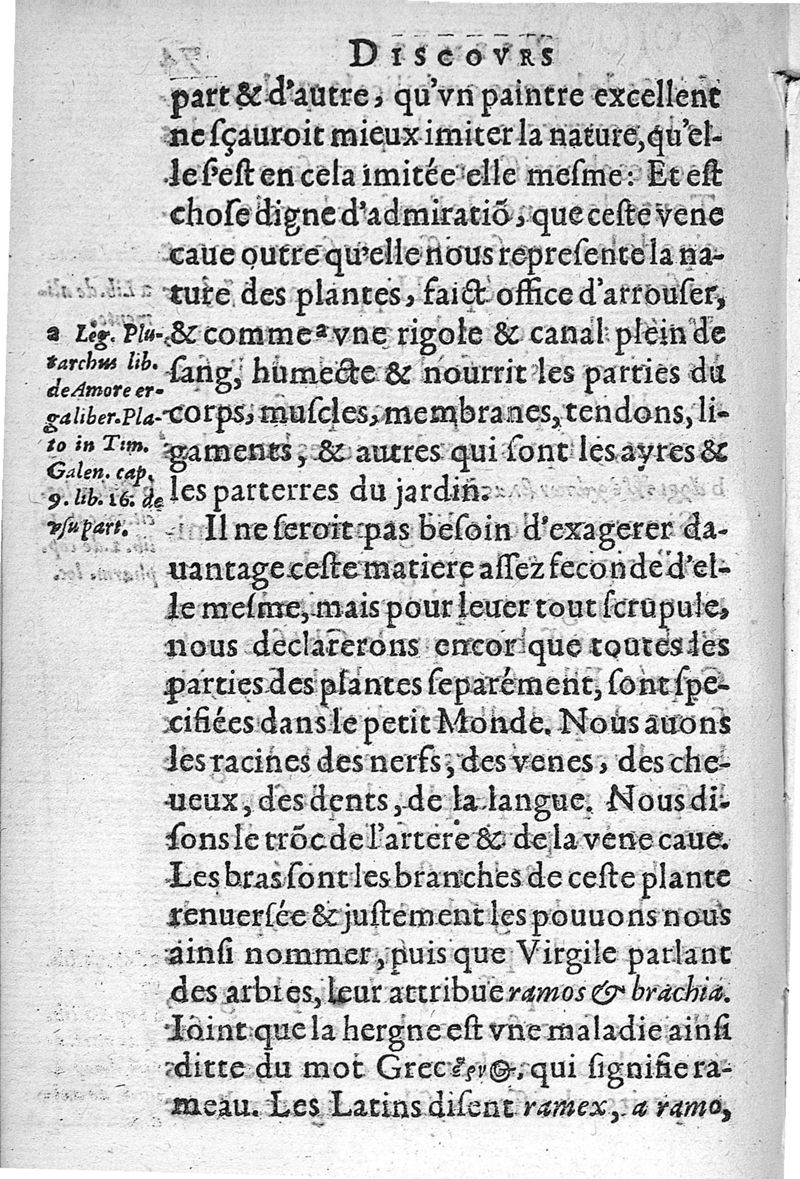 DISCOVRS
part & d'autre, qu'vn paintre excellent
ne sçauroit mieux imiter la nature, qu'el-
le s'est en cela imitée elle mesme: Et est
chose digne d'admiratiõ, que ceste vene
caue outre qu'elle nous represente la na-
ture des plantes, faict office d'arrouser,
& comme ᵃ vne rigole & canal plein de
sang, humecte & nourrit les parties du
corps, muscles, membranes, tendons, li-
gaments, & autres qui sont les ayres &
les parterres du jardin.
a Leg. Plu-
tarchus lib.
de Amore er-
ga liber. Pla-
to in Tim.
Galen. cap.
9. lib. 16. de
vsu part.
Il ne seroit pas besoin d'exagerer da-
uantage ceste matiere assez feconde d'el-
le mesme, mais pour leuer tout scrupule,
nous declarerons encor que toutes les
parties des plantes separément, sont spe-
cifiées dans le petit Monde. Nous auons
les racines des nerfs, des venes, des che-
ueux, des dents, de la langue. Nous di-
sons le trõc de l'artere & de la vene caue.
Les bras sont les branches de ceste plante
renuersée & justement les pouuons nous
ainsi nommer, puis que Virgile parlant
des arbres, leur attribue ramos & brachia.
Ioint que la hergne est vne maladie ainsi
ditte du mot Grec qui signifie ra-
meau. Les Latins disent ramex, a ramo,